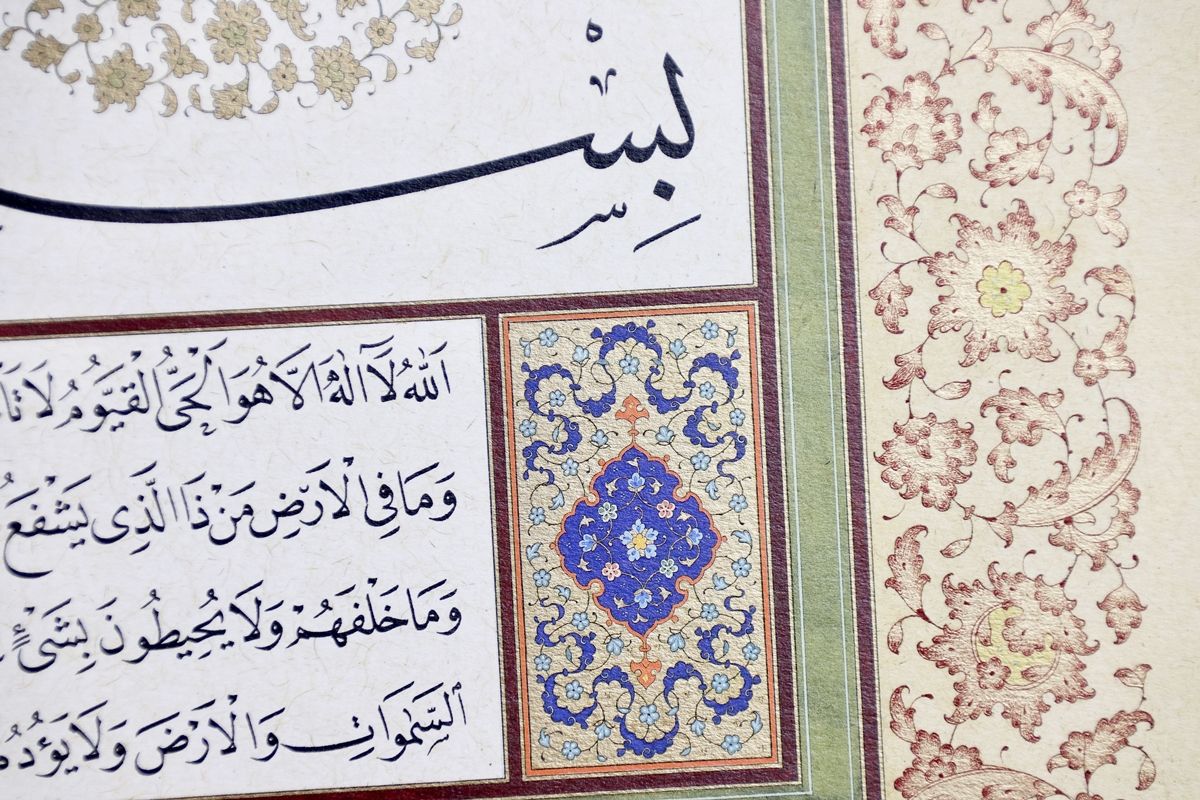 بِسْـ
اَللّٰهُ لَآ اِلٰهَ اِلَّا هُوَ الْحَيُّ الْقَيُّومُ لَا تَأ
وَمَا فِي الْاَرْضِ مَنْ ذَا الَّذِي يَشْفَعُ
وَمَا خَلْفَهُمْ وَلَا يُحِيطُونَ بِشَيْءٍ
السَّمٰوَاتِ وَالْاَرْضَ وَلَا يَؤُدُهُ